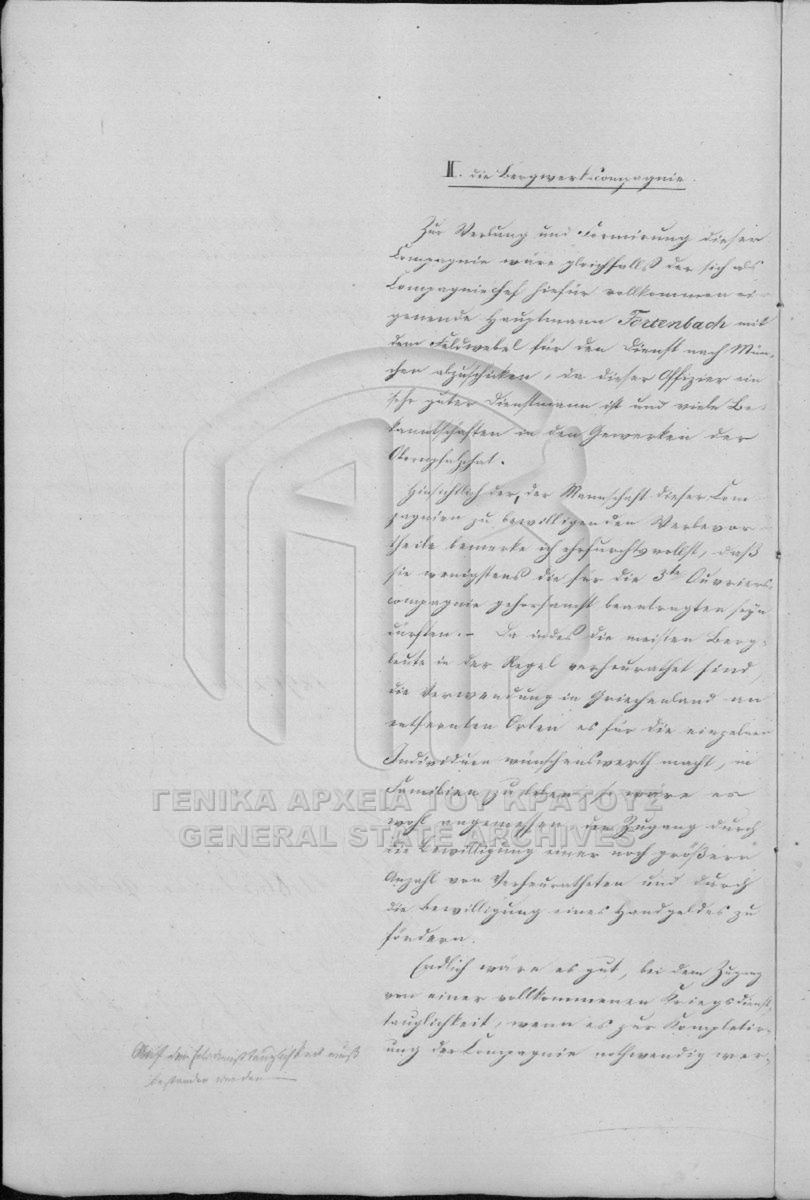 II. die Bergwerkscompagnie.
Zur Werbung und Formirung dieser
Compagnie wäre gleichfalls der sich als
Compagniechef hiefür vollkommen ei-
gnende Hauptmann Fertenbach mit
dem Feldwebel für den Dienst nach Mün-
chen abzuschicken, da dieser Offizier ein
sehr guter Dienstmann ist und viele Be-
kanntschaften in den Gewerken der
Oberpfalz hat.
Hinsichtlich der, der Mannschaft dieser Com-
pagnien zu bewilligenden Werbevor-
theile bemerke ich ehrfurchtsvollst, daß
sie wenigstens die für die 3te Ouvriers-
compagnie gehorsamst beantragten seyn
dürften. – Da indes die meisten Berg-
leute in der Regel verheurathet sind,
die Verwendung in Griechenland an
entfernten Orten es für die einzelnen
Individuen wünschenswerth macht, in
Familien zu leben, so wäre es
wohl angemessen, den Zugang durch
die Bewilligung einer noch größern
Anzahl von Verheuratheten und durch
die Bewilligung eines Handgeldes zu
fördern.
Endlich wäre es gut, bei dem Zugang
von einer vollkommenen Kriegsdienst-
tauglichkeit, wenn es zur Kompletir-
ung der Compagnie nothwendig wer-
Auf der Felddiensttauglichkeit muß
bestanden werden
ΓΕΝΙΚΑ ΑΡΧΕΙΑ ΤΟΥ ΚΡΑΤΟΥΣ
GENERAL STATE ARCHIVES